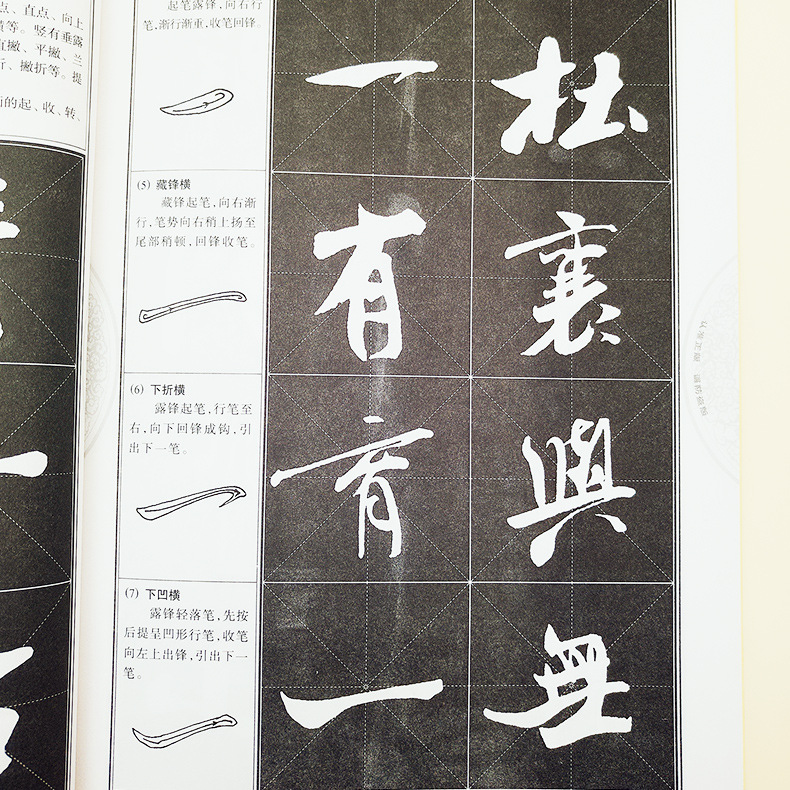 点、直点、向上
等。竖有垂露
直撇、平撇、兰
折、撇折等。提
的起、收、转、
起笔露锋，向右行
笔，渐行渐重，收笔回锋。
(5) 藏锋横
藏锋起笔，向右渐
行，笔势向右稍上扬至
尾部稍顿，回锋收笔。
(6) 下折横
露锋起笔，行笔至
右，向下回锋成钩，引
出下一笔。
(7) 下凹横
露锋轻落笔，先按
后提呈凹形行笔，收笔
向左上出锋，引出下一
笔。
一 杜
有 裏
與
一 無